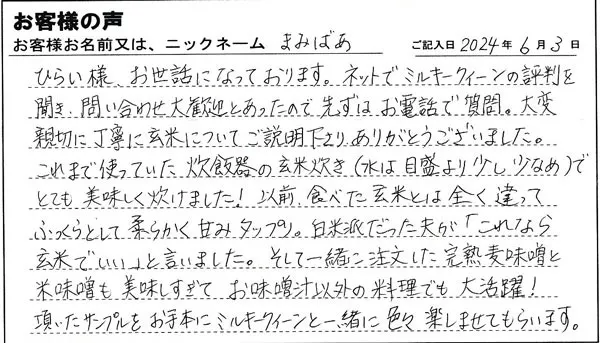 お客様の声
お客様お名前又は、ニックネーム まみばあ ご記入日 2024年 6月 3日
ひらい様、お世話になっております。ネットでミルキークィーンの評判を
聞き、問い合わせ大歓迎とあったので先ずはお電話で質問。大変
親切に丁寧に玄米についてご説明下さりありがとうございました。
これまで使っていた炊飯器の玄米炊き(水は目盛より少し少なめ)で
とても美味しく炊けました!以前食べた玄米とは全く違って
ふっくらとして柔らかく甘みタップリ。白米派だった夫が「これなら
玄米でいい」と言いました。そして一緒に注文した完熟麦味噌と
米味噌も美味しすぎて お味噌汁以外の料理でも大活躍!
頂いたサンプルをお手本にミルキークィーンと一緒に色々楽しませてもらいます。